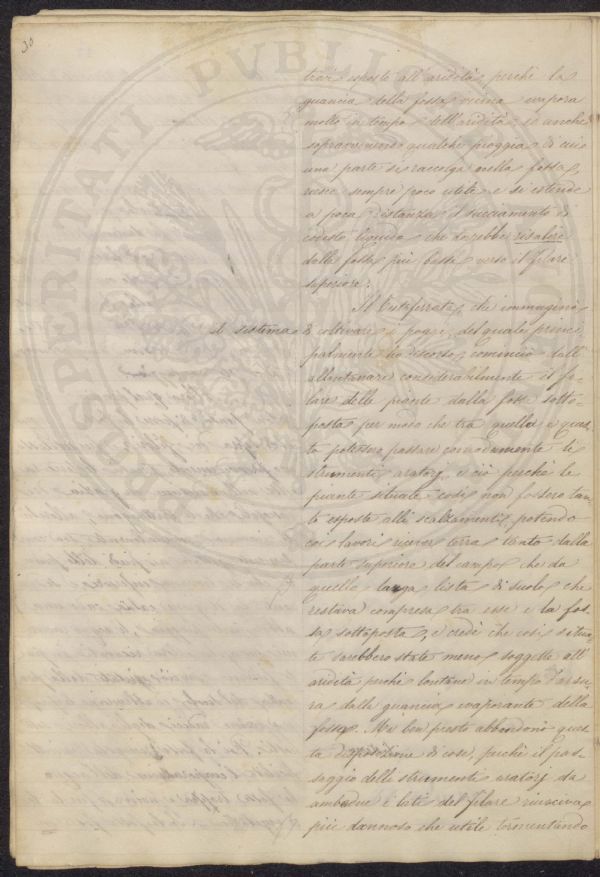 30
PROSPERITATI PUBLICAE
trovi esposte all'aridità, perchè la
guancia della fossa vicina evapora
molto in tempo dell'aridità, se anche
sopravvenendo qualche pioggia di cui
una parte si raccolga nella fossa,
riesce sempre poco utile e si estende
a poca distanza il succiamento di
codesto liquido che dovrebbe risalire
dalla fossa più bassa verso il filare
superiore.
Il Landeferrata, che immaginò
il sistema di coltivare i poggi, del quale princi
palmente ho discorso, cominciò dall'
allontanare considerabilmente il fi-
lare delle piante dalla fossa sotto-
posta per modo che tra quella e ques-
ta potessero passare comodamente li
strumenti aratorj, e ciò perchè le
piante situate così non fossero tan-
to esposte alli scalzamenti, potendo
coi lavori ricever terra tanto dalla
parte superiore del campo che da
quella larga lista di suolo che
restava compresa tra esse e la fos-
sa sottoposta, e credè che così situa-
te sarebbero state meno soggette all'
aridità perchè lontane in tempo d'arsu-
ra dalla guancia evaporante della
fossa. Ma ben presto abbandonò ques-
ta disposizione di cose, perchè il pas-
saggio delli strumenti aratorj da
ambedue i lati del filare riusciva
più dannoso che utile tormentando